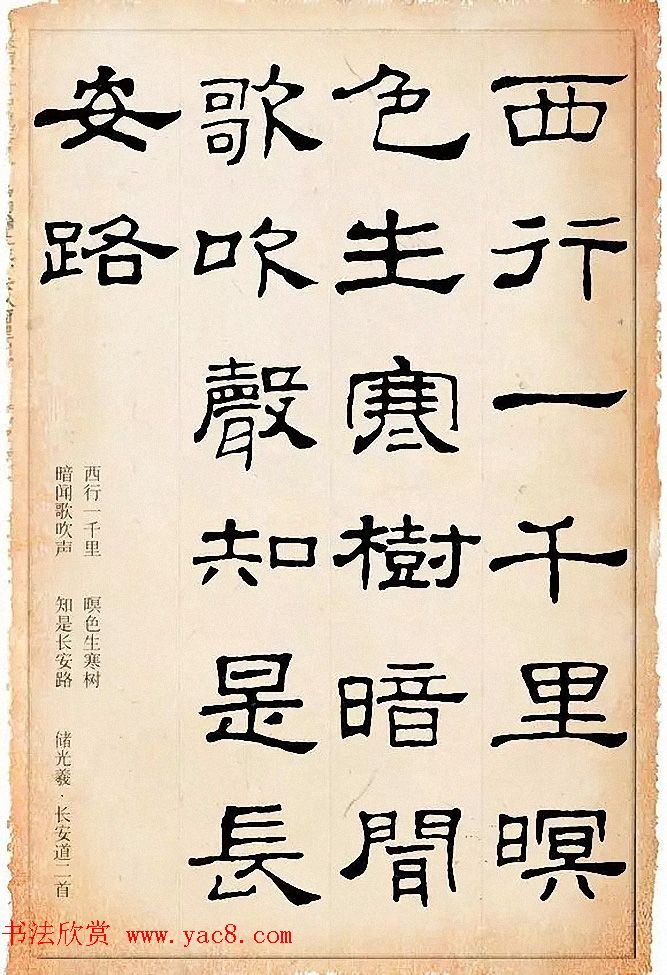 西行一千里暝
色生寒樹暗聞
歌吹聲知是長
安路
西行一千里　暝色生寒树
暗闻歌吹声　知是长安路　储光羲·长安道二首
书法欣赏 www.yac8.com